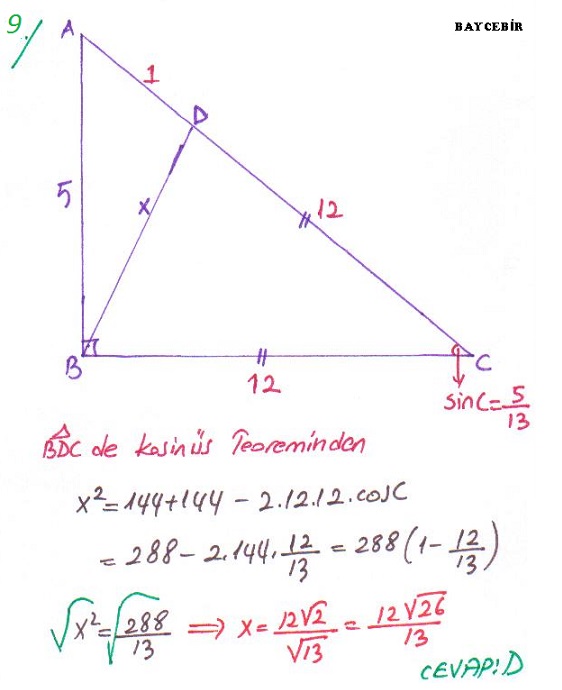 9./
BAYCEBİR
A
1
D
5
x
12
B
12
C
sinC=5/13
BDC de kosinüs Teoreminden
x²=144+144 - 2.12.12.cosC
= 288 - 2.144.12/13 = 288(1-12/13)
√x² = √288/13 ⇒ x = 12√2/√13 = 12√26/13
CEVAP:D